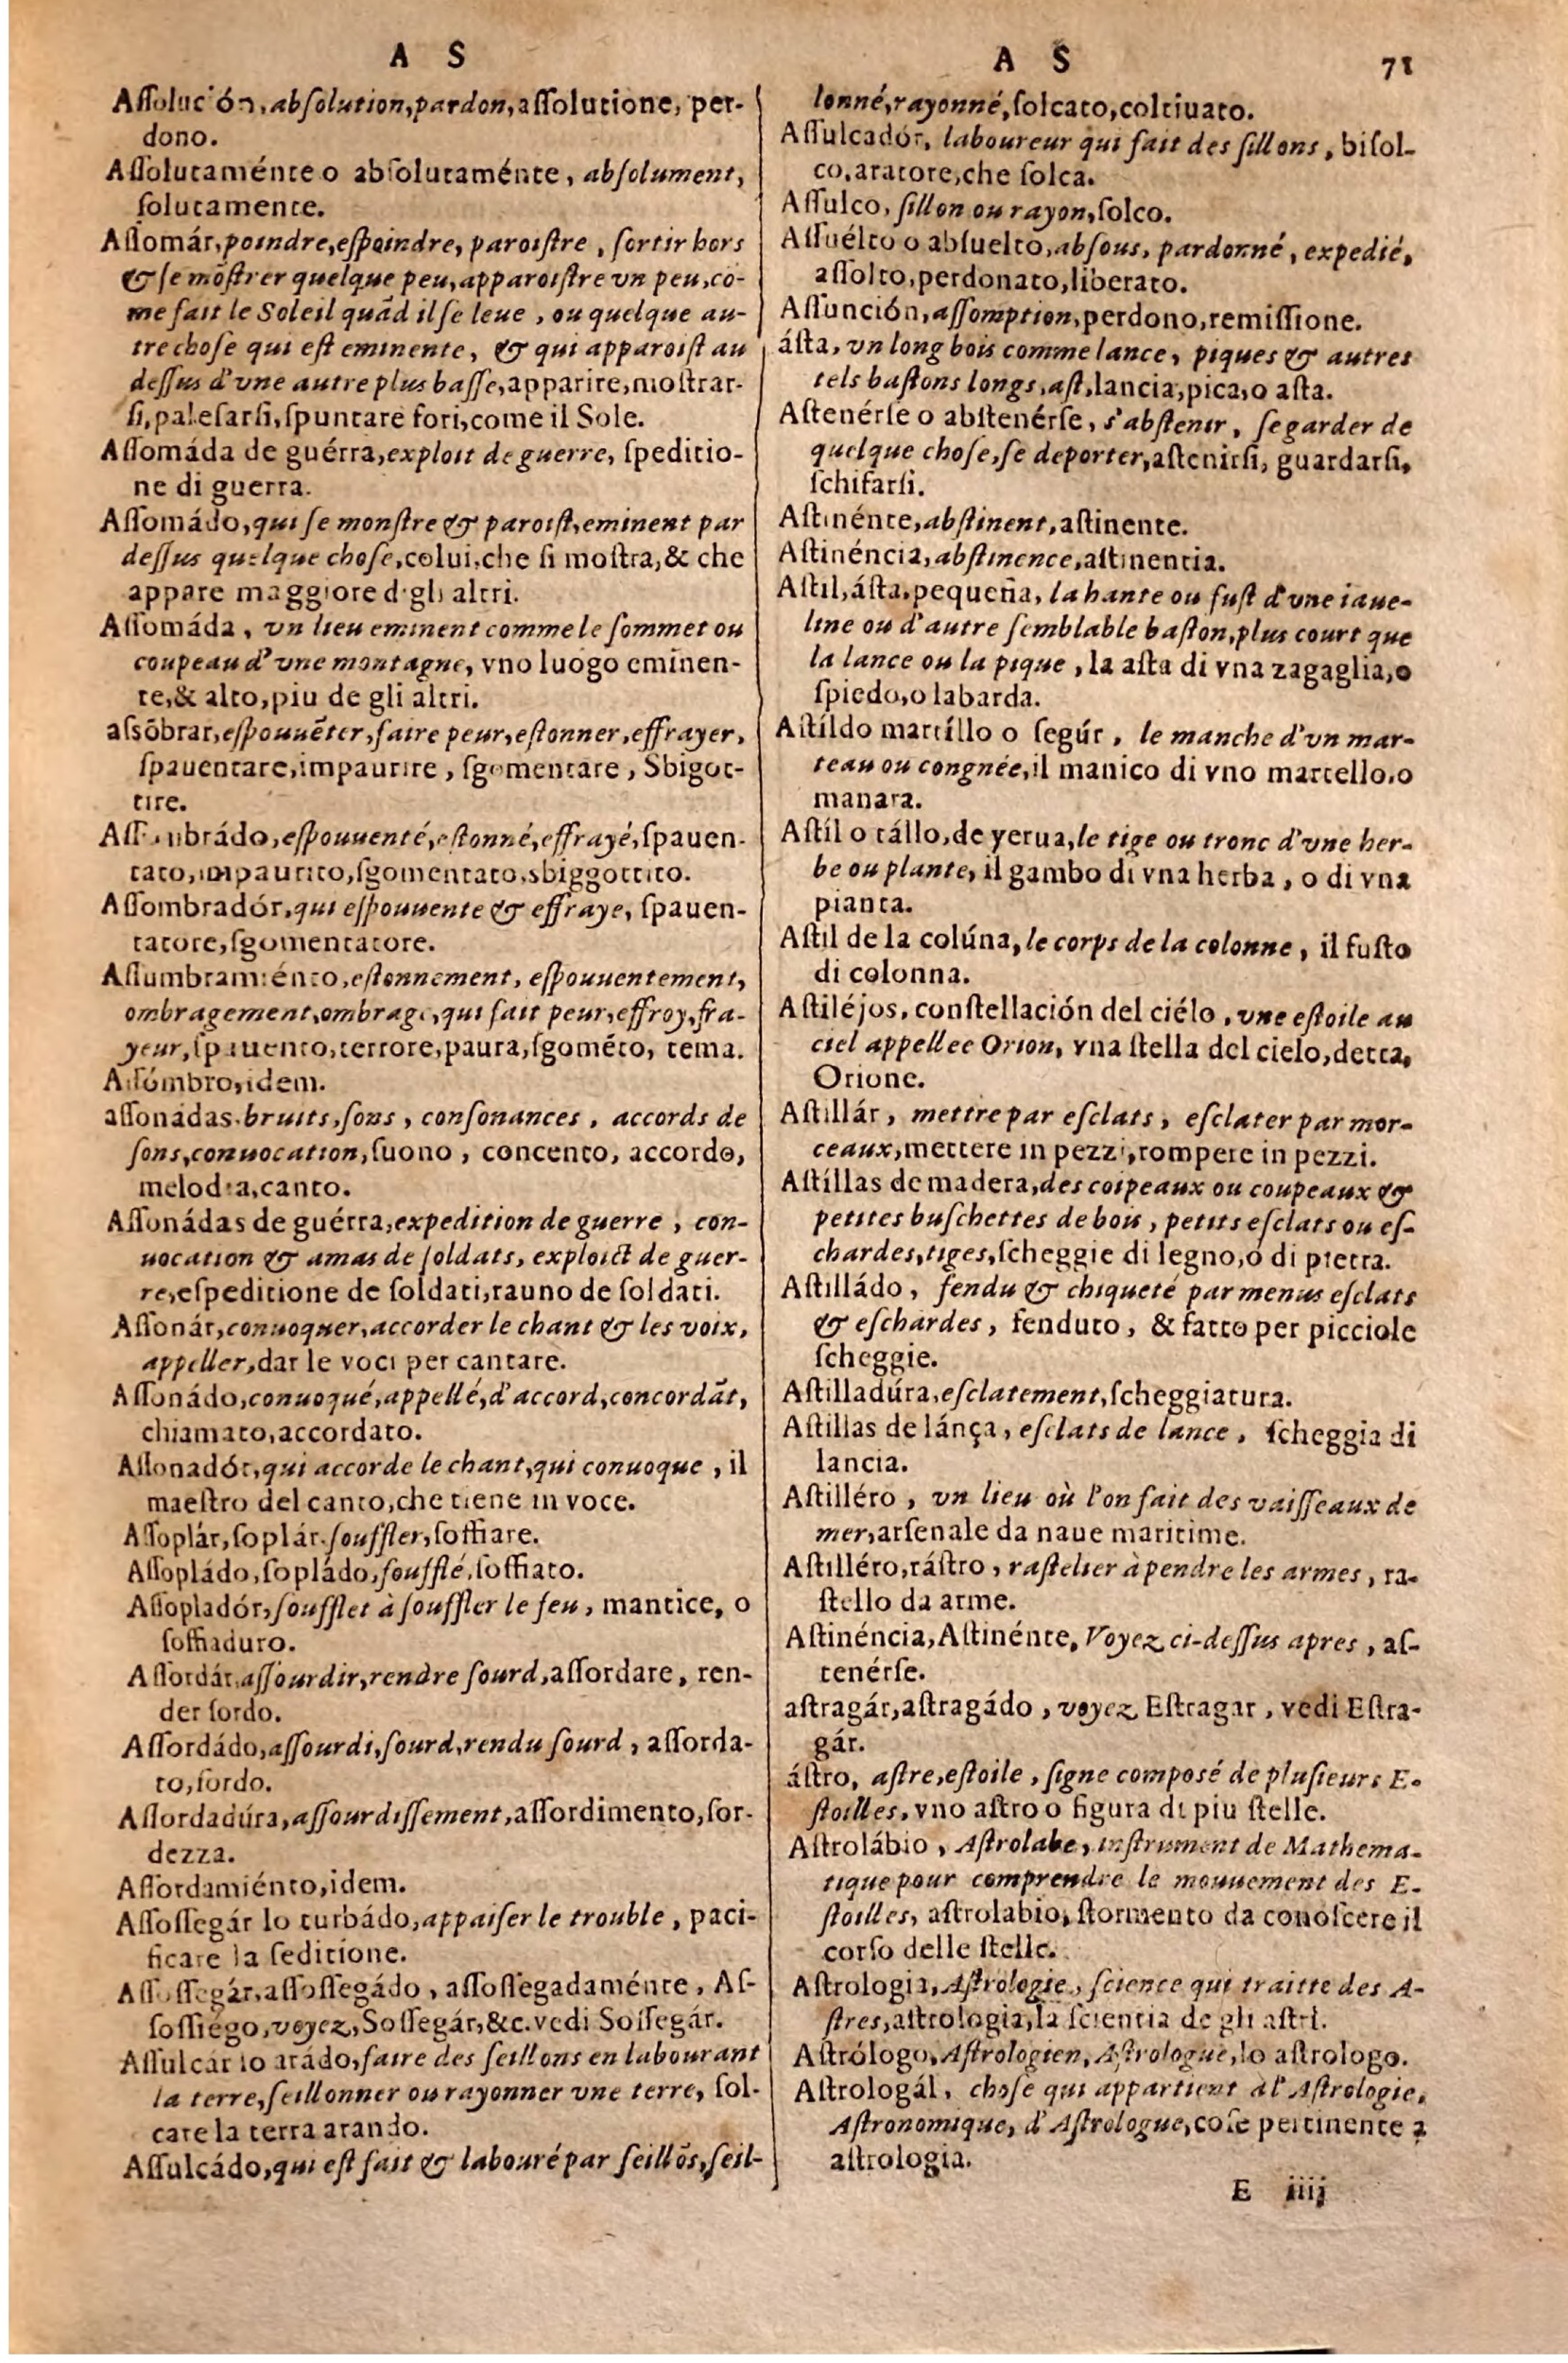 A S
Aſſolución, abſolution, pardon, aſſolutione, per-
dono.
Aſſolutaménte o abſolutaménte, abſolument,
ſolutamente.
Aſſomár, poindre, eſpoindre, paroiſtre, ſortir hors
& ſe mõſtrer quelque peu, apparoiſtre vn peu, cō-
me fait le Soleil quãd il ſe leue, ou quelque au-
tre choſe qui eſt eminente, & qui apparoiſt au
deſſus d'vne autre plus baſſe, apparire, moſtrar-
ſi, paleſarſi, ſpuntare fori, come il Sole.
Aſſomáda de guérra, exploit de guerre, ſpeditio-
ne di guerra.
Aſſomádo, qui ſe monſtre & paroiſt, eminent par
deſſus quelque choſe, colui, che ſi moſtra, & che
appare maggiore d'gli altri.
Aſſomáda, vn lieu eminent comme le ſommet ou
coupeau d'vne montagne, vno luogo eminen-
te, & alto, piu de gli altri.
aſsõbrar, eſpouuẽter, faire peur, eſtonner, effrayer,
ſpauentare, impaurire, ſgomentare, Sbigot-
tire.
Aſſombrádo, eſpouuenté, eſtonné, effrayé, ſpauen-
tato, impaurito, ſgomentato, sbiggottito.
Aſſombradór, qui eſpouuente & effraye, ſpauen-
tatore, ſgomentatore.
Aſſumbramiénto, eſtonnement, eſpouuentement,
ombragement, ombrage, qui fait peur, effroy, fra-
yeur, ſpauento, terrore, paura, ſgomẽto, tema.
Aſſómbro, idem.
aſſonádas. bruits, ſons, conſonances, accords de
ſons, conuocation, ſuono, concento, accordo,
melodia, canto.
Aſſonádas de guérra, expedition de guerre, con-
uocation & amas de ſoldats, exploict de guer-
re, eſpeditione de ſoldati, rauno de ſoldati.
Aſſonár, conuoquer, accorder le chant & les voix,
appeller, dar le voci per cantare.
Aſſonádo, conuoqué, appellé, d'accord, concordãt,
chiamato, accordato.
Aſſonadór, qui accorde le chant, qui conuoque, il
maeſtro del canto, che tiene in voce.
Aſſoplár, ſoplár. ſouffler, ſoffiare.
Aſſopládo, ſopládo, ſoufflé, ſoffiato.
Aſſopladór, ſoufflet à ſouffler le feu, mantice, o
ſoffiaduro.
Aſſordár, aſſourdir, rendre ſourd, aſſordare, ren-
der ſordo.
Aſſordádo, aſſourdi, ſourd, rendu ſourd, aſſorda-
to, ſordo.
Aſſordadúra, aſſourdiſſement, aſſordimento, ſor-
dezza.
Aſſordamiénto, idem.
Aſſoſſegár lo turbádo, appaiſer le trouble, paci-
ficare la ſeditione.
Aſſoſſegár, aſſoſſegádo, aſſoſſegadaménte, Aſ-
ſoſſiego, voyez, Soſſegár, &c. vedi Soſſegár.
Aſſulcár lo arádo, faire des ſeillons en labourant
la terre, ſeillonner ou rayonner vne terre, ſol-
care la terra arando.
Aſſulcádo, qui eſt fait & labouré par ſeillõs, ſeil-
A S 71
lonné, rayonné, ſolcato, coltiuato.
Aſſulcadór, laboureur qui fait des ſillons, biſol-
co, aratore, che ſolca.
Aſſulco, ſillon ou rayon, ſolco.
Aſſuélto o abſuelto, abſous, pardonné, expedié,
aſſolto, perdonato, liberato.
Aſſunción, aſſomption, perdono, remiſſione.
áſta, vn long bois comme lance, piques & autres
tels baſtons longs, aſt, lancia, pica, o aſta.
Aſtenérſe o abſtenérſe, s'abſtenir, ſe garder de
quelque choſe, ſe deporter, aſtenirſi, guardarſi,
ſchifarſi.
Aſtinénte, abſtinent, aſtinente.
Aſtinéncia, abſtinence, aſtinentia.
Aſtil, áſta, pequeña, la hante ou fuſt d'vne iaue-
line ou d'autre ſemblable baſton, plus court que
la lance ou la pique, la aſta di vna zagaglia, o
ſpiedo, o labarda.
Aſtíldo martíllo o ſegúr, le manche d'vn mar-
teau ou congnée, il manico di vno martello, o
manara.
Aſtíl o tállo, de yerua, le tige ou tronc d'vne her-
be ou plante, il gambo di vna herba, o di vna
pianta.
Aſtil de la colúna, le corps de la colonne, il fuſto
di colonna.
Aſtiléjos, conſtellación del ciélo, vne eſtoile au
ciel appellee Orion, vna ſtella del cielo, detta,
Orione.
Aſtillár, mettre par eſclats, eſclater par mor-
ceaux, mettere in pezzi, rompere in pezzi.
Aſtíllas de madera, des coipeaux ou coupeaux &
petites buſchettes de bois, petits eſclats ou eſ-
chardes, tiges, ſcheggie di legno, o di pietra.
Aſtilládo, fendu & chiqueté par menus eſclats
& eſchardes, fenduto, & fatto per picciole
ſcheggie.
Aſtilladúra, eſclatement, ſcheggiatura.
Aſtillas de lánça, eſclats de lance, ſcheggia di
lancia.
Aſtilléro, vn lieu où l'on fait des vaiſſeaux de
mer, arſenale da naue maritime.
Aſtilléro, ráſtro, raſtelier à pendre les armes, ra-
ſtello da arme.
Aſtinéncia, Aſtinénte, Voyez ci-deſſus apres, aſ-
tenérſe.
aſtragár, aſtragádo, voyez Eſtragar, vedi Eſtra-
gár.
áſtro, aſtre, eſtoile, ſigne compoſé de pluſieurs E-
ſtoilles, vno aſtro o figura di piu ſtelle.
Aſtrolábio, Aſtrolabe, inſtrument de Mathema-
tique pour comprendre le mouuement des E-
ſtoilles, aſtrolabio, ſtormento da conoſcere il
corſo delle ſtelle.
Aſtrologia, Aſtrologie, ſcience qui traitte des A-
ſtres, aſtrologia, la ſcientia de gli aſtri.
Aſtrólogo, Aſtrologien, Aſtrologue, lo aſtrologo.
Aſtrologál, choſe qui appartient à l'Aſtrologie,
Aſtronomique, d'Aſtrologue, coſe pertinente a
aſtrologia.
E iiij